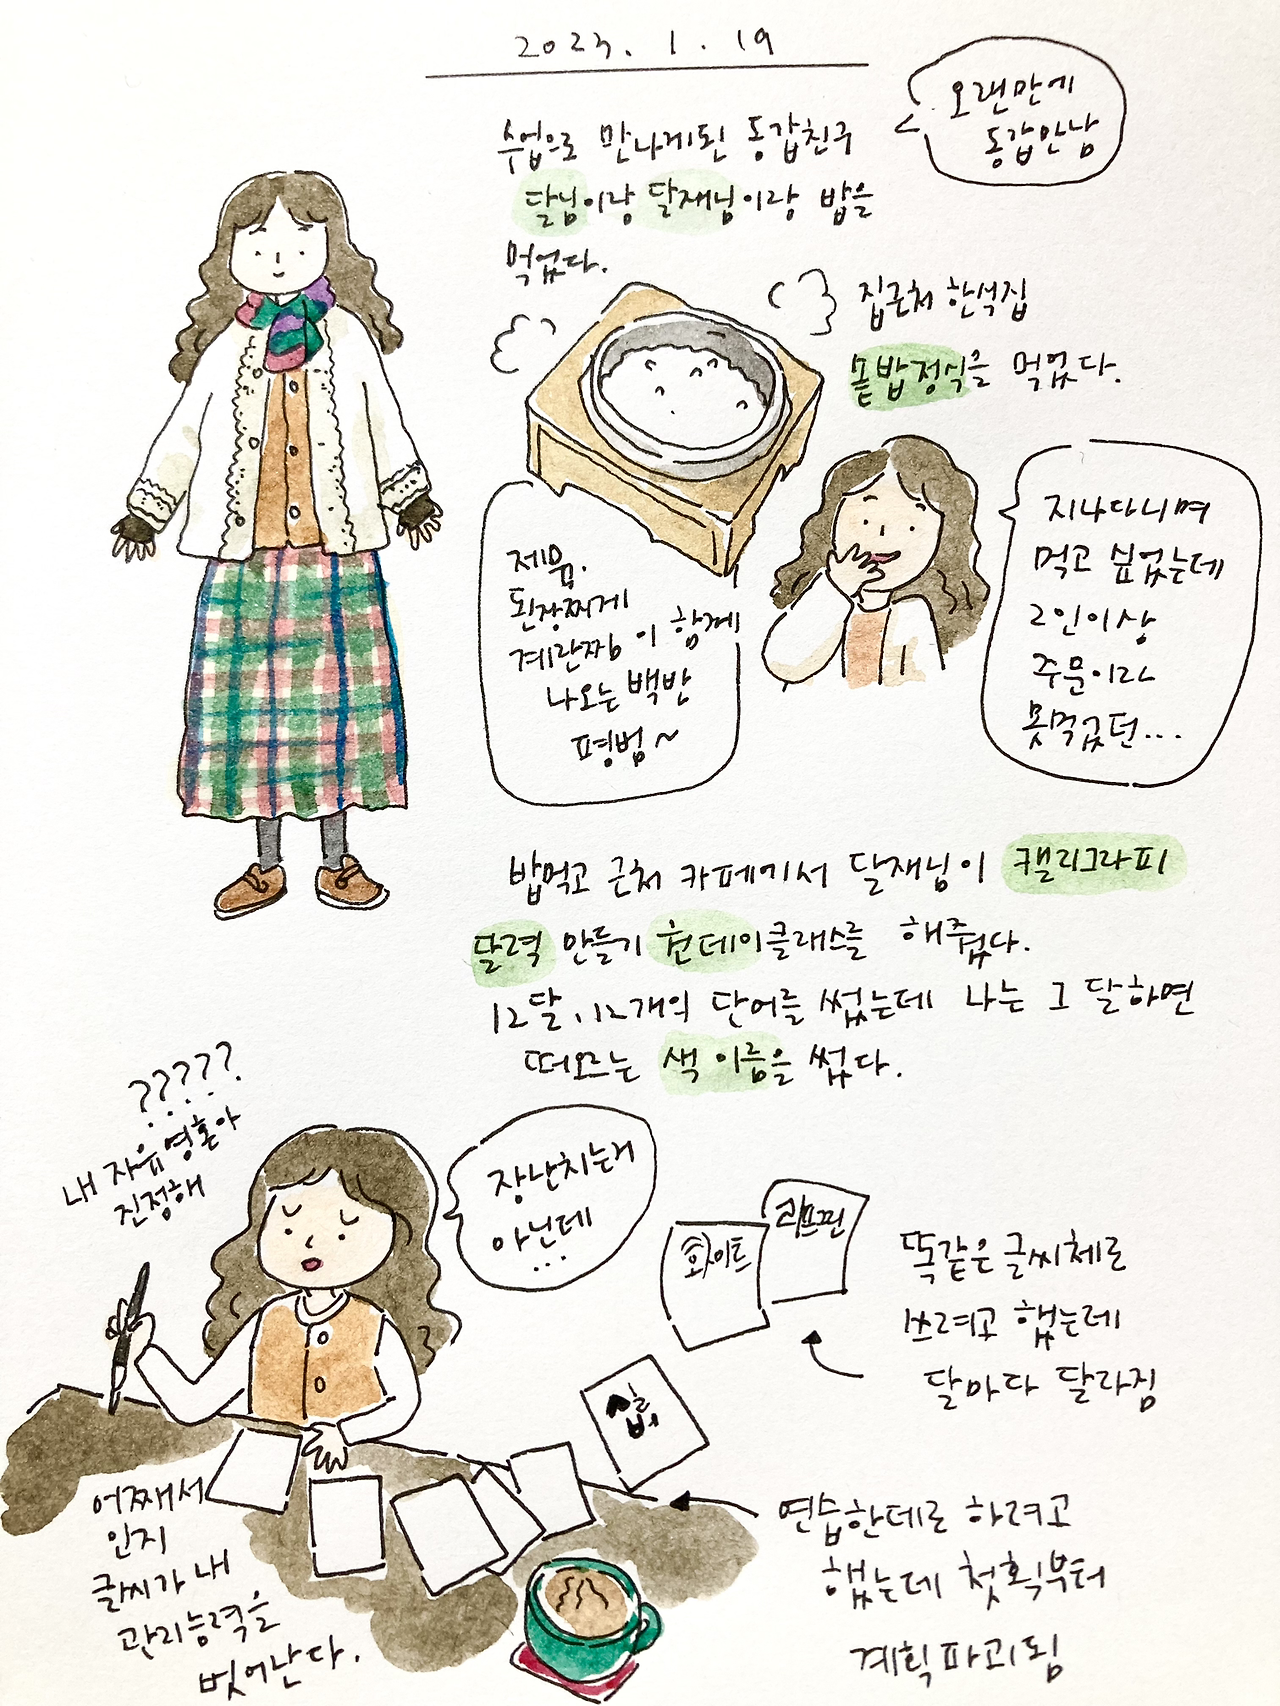 2023. 1. 19
오랜만에
동갑만남
수업으로 만나게된 동갑친구
달님이랑 달재님이랑 밥을
먹었다.
집근처 한식집
솥밥정식을 먹었다.
제육.
된장찌게
계란찜이 함께
나오는 백반
평범~
지나다니며
먹고 싶었는데
2인이상
주문이라
못먹궀던...
밥먹고 근처 카페에서 달재님이 캘리그라피
달력 만들기 원데이클래스를 해주었다.
12달, 12개의 단어를 썼는데 나는 그 달하면
떠오르는 색 이름을 썼다.
?????
내 자유영혼아
진정해
장난치는거
아닌데
...
화이트
똑같은 글씨체로
쓰려고 했는데
달마다 달라짐
어째서
인지
글씨가 내
관리능력을
벗어난다.
연습한데로 하려고
했는데 첫획부터
계획파괴됨